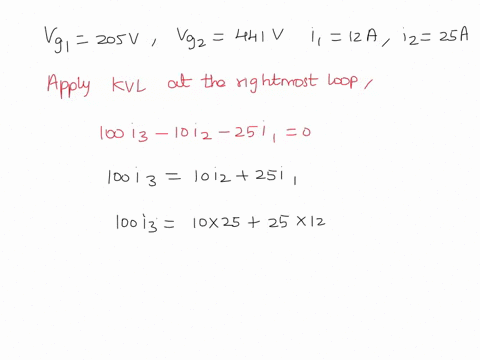 Vg₁ = 205V , Vg₂ = 441 V i₁ = 12A , i₂ = 25A
Apply KVL at the rightmost loop,
100 i₃ − 10 i₂ − 25 i₁ = 0
100 i₃ = 10 i₂ + 25 i₁
100 i₃ = 10 × 25 + 25 × 12